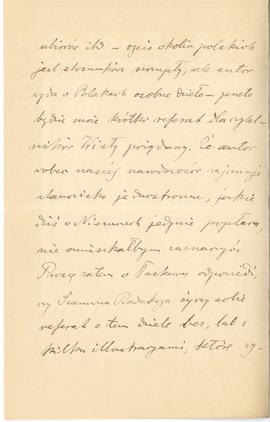 ubiorów itd – opis okolic polskich
jest stosunków szczupły, ale autor
wyda o Polakach osobne dzieło – przeto
będzie może krótki referat dla czytel-
ników Wisły pożądany. Że autor
wobec naszej narodowości zajmuje
stanowisko jedynostronne, jakie
dziś w Niemczech jedynie popularne,
nie omieszkałbym zaznaczyć.
Proszę zatem o łaskawą odpowiedź,
czy Szanowna Redakcja życzy sobie
referat o tem dziele bez, lub z
kilku illustracjami, które